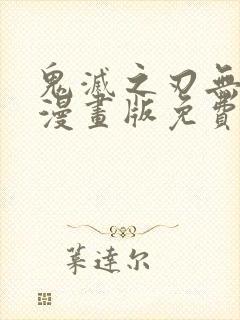 鬼滅之刃無
漫畫版免費
葉達尔